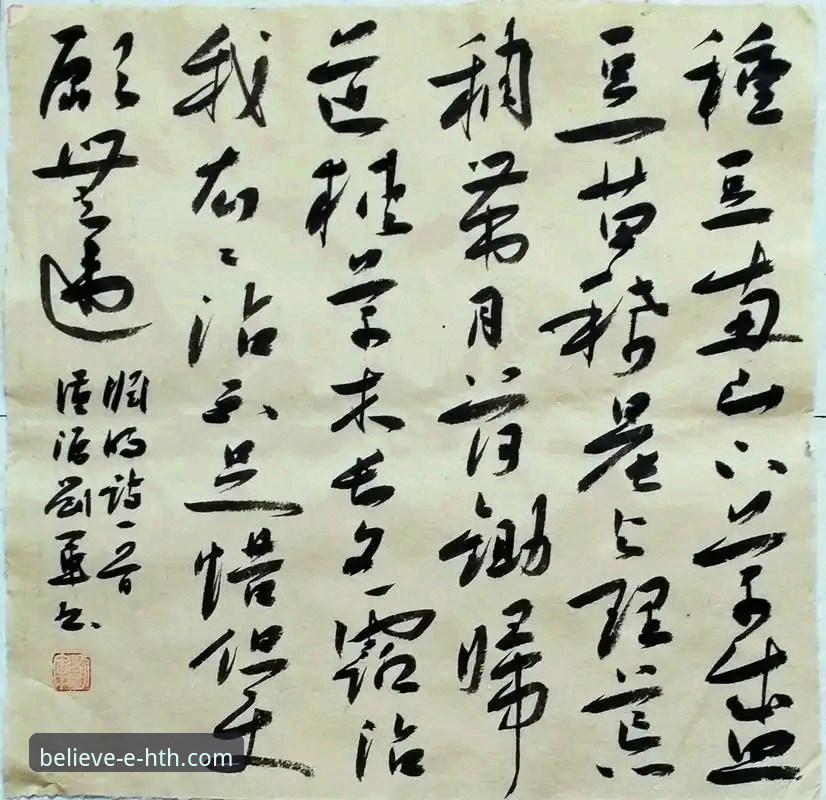 種豆南山下草盛
豆苗稀晨兴理荒
穢帶月荷鋤歸
道狹草木長夕露沾
我衣〻沾不足惜但使
願無違
淵明詩一首
劉軍书
believe-e-hth.com